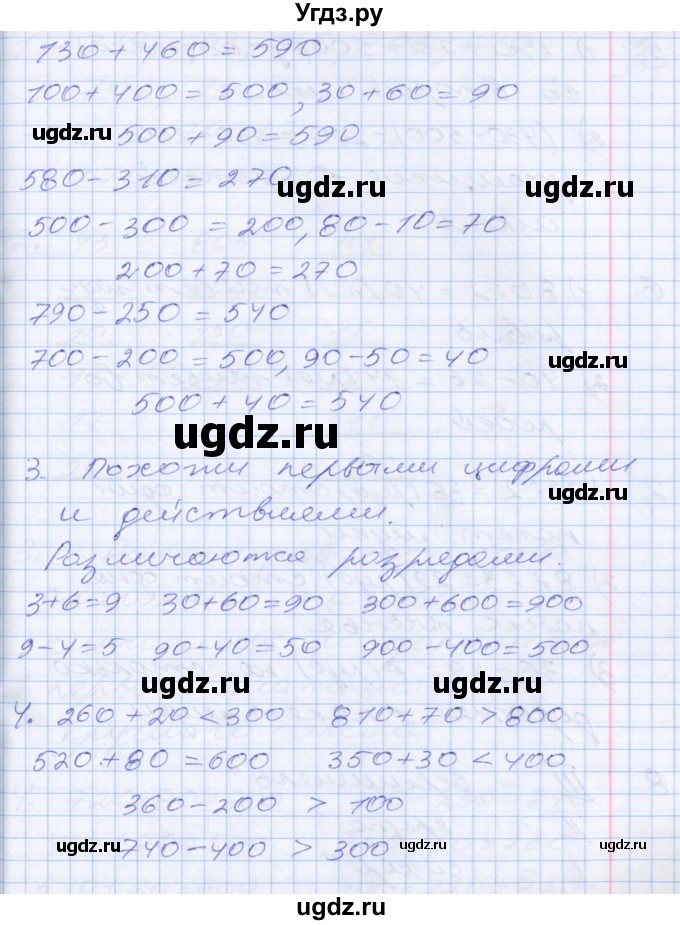 Угдз.ру
130 + 460 = 590
100 + 400 = 500, 30 + 60 = 90
ugdz.ru 500 + 90 = 590
580 - 310 = 270 ugdz.ru ugdz.ru
500 - 300 = 200, 80 - 10 = 70
200 + 70 = 270
790 - 250 = 540
700 - 200 = 500, 90 - 50 = 40 ugdz.ru
500 + 40 = 540
ugdz.ru
3. Похожи первыми цифрами
и действиями. ugdz.ru
Различаются разрядами.
3+6=9 30+60=90 300+600=900
9-4=5 90-40=50 900-400=500.
ugdz.ru ugdz.ru
4. 260 + 20 < 300 810 + 70 > 800
520 + 80 = 600 350 + 30 < 400.
360 - 200 > 100
ugdz.ru 740 - 400 > 300 ugdz.ru ugdz.ru
ugdz.ru